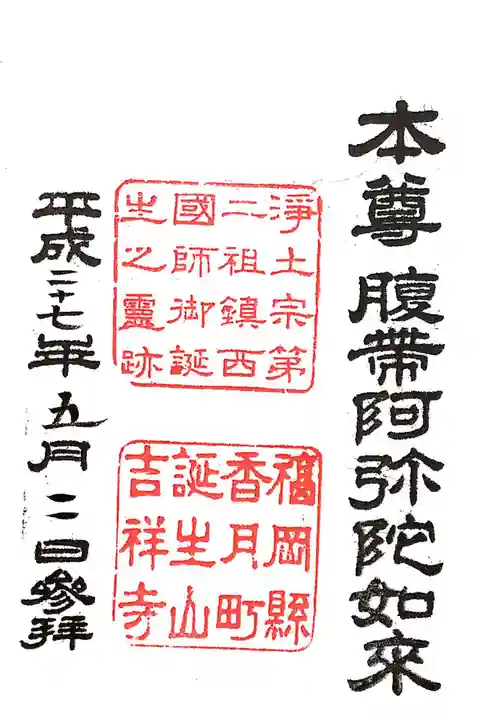 本尊 腹帯阿弥陀如來
淨土宗第
二祖鎮西
國師御誕
生之靈跡
福岡縣
香月町
誕生山
吉祥寺
平成二十七年五月二日參拜